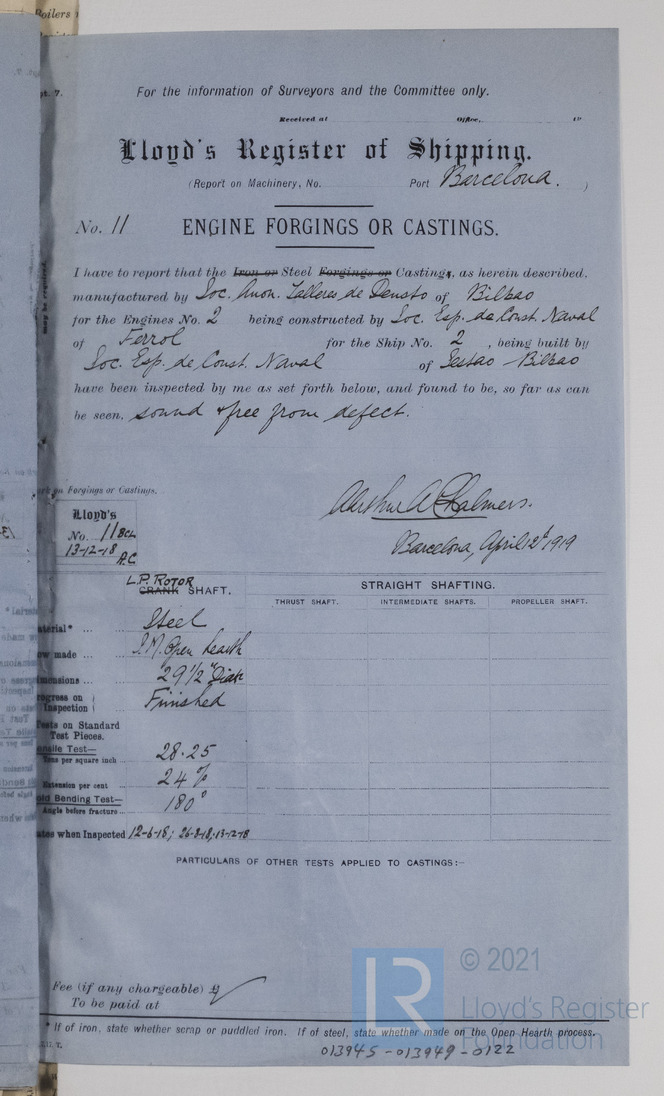 Boilers
pt. 7.
For the information of Surveyors and the Committee only.
Received at Office, 19
Lloyd's Register of Shipping.
(Report on Machinery, No. Port Barcelona. )
No. 11 ENGINE FORGINGS OR CASTINGS.
I have to report that the Iron or Steel Forgings or Castings, as herein described,
manufactured by Soc. Anon. Talleres de Deusto of Bilbao
for the Engines No. 2 being constructed by Soc. Esp. de Const. Naval
of Ferrol for the Ship No. 2, being built by
Soc. Esp. de Const. Naval of Sestao - Bilbao
have been inspected by me as set forth below, and found to be, so far as can
be seen, sound & free from defect.
may be required.
on Forgings or Castings.
Lloyd's
No. 11 BCL
13-12-18
A.C.
Arthur A Chalmers.
Barcelona, April 2d 1919
L.P. ROTOR
CRANK SHAFT. STRAIGHT SHAFTING.
THRUST SHAFT. INTERMEDIATE SHAFTS. PROPELLER SHAFT.
aterial* ... Steel
ow made ... S.M. Open hearth
mensions ... 29 1/2" Diar
rogress on Inspection Finished
ests on Standard
Test Pieces.
ensile Test—
Tons per square inch ... 28.25
Extension per cent ... 24 %
old Bending Test—
Angle before fracture ... 180°
ates when Inspected 12-6-18; 26-8-18; 13-12-18
PARTICULARS OF OTHER TESTS APPLIED TO CASTINGS:—
Fee (if any chargeable)
To be paid at
* If of iron, state whether scrap or puddled iron. If of steel, state whether made on the Open Hearth process.
013945-013949-0122
LR
© 2021
Lloyd's Register
Foundation